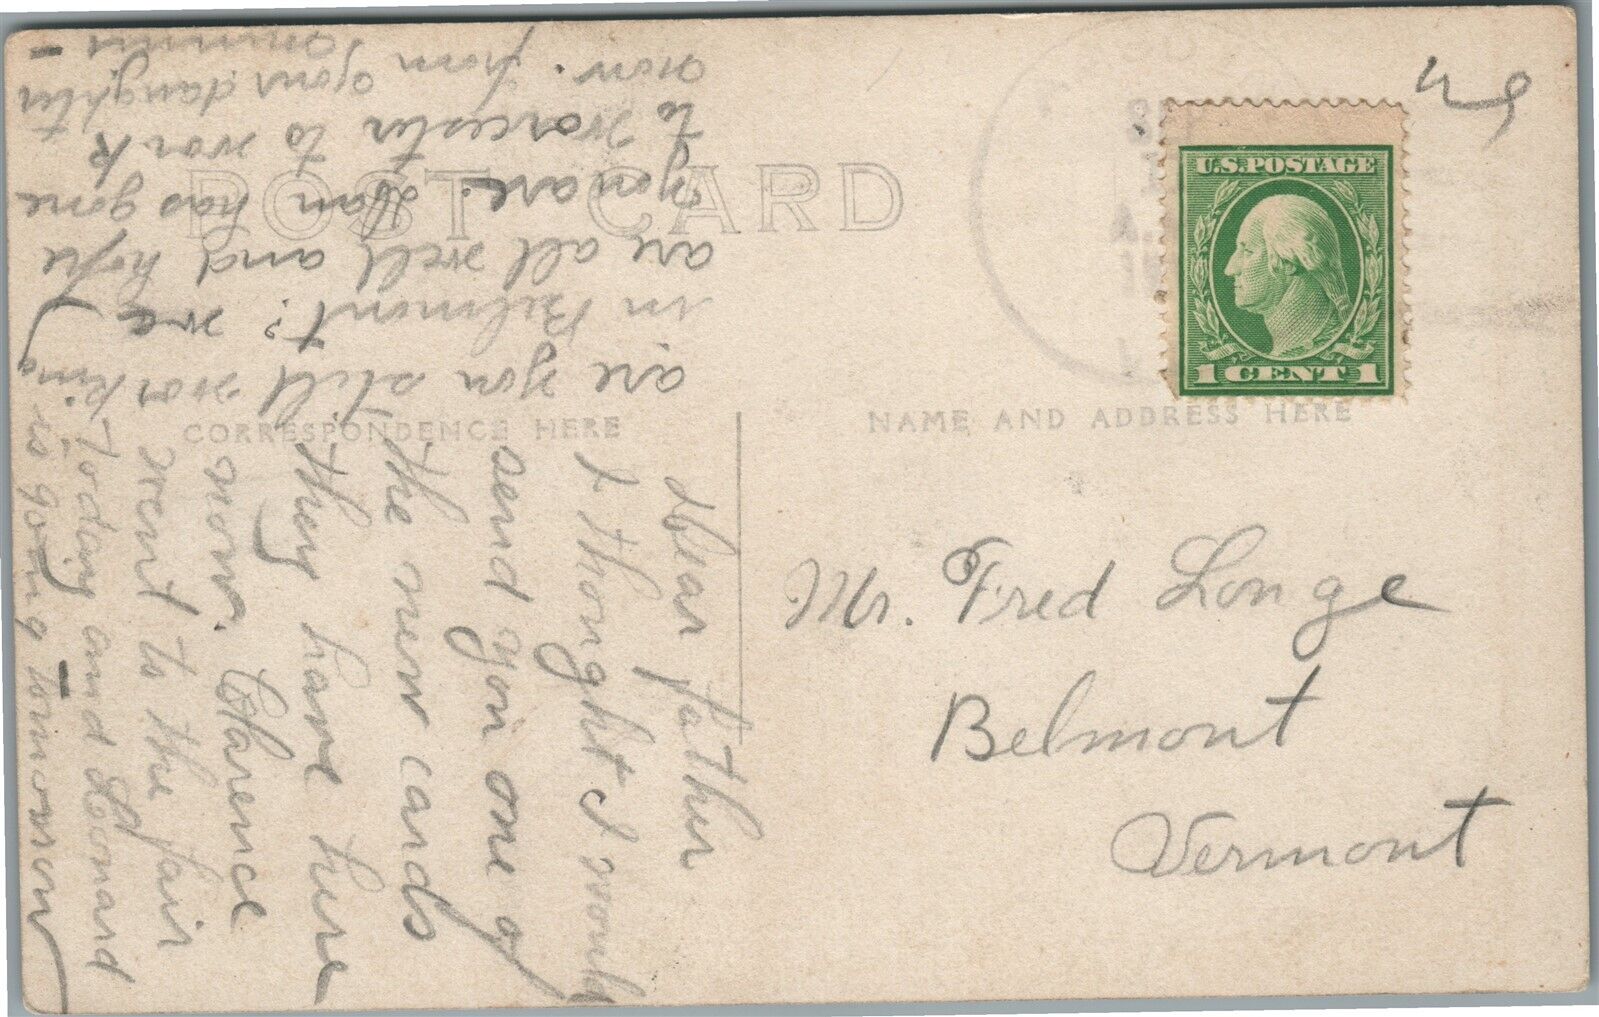 POST CARD
CORRESPONDENCE HERE
NAME AND ADDRESS HERE
U.S. POSTAGE
1 CENT 1
Mr. Fred Longe
Belmont
Vermont
Dear father
I thought I would
send you one of
the new cards
they have here
now. Clarence
went to the fair
Today and Leonard
is going tomorrow
are you still working
in Belmont? we
are all well and hope
you are. Stan has gone
to worcester to work
now. from your daughter